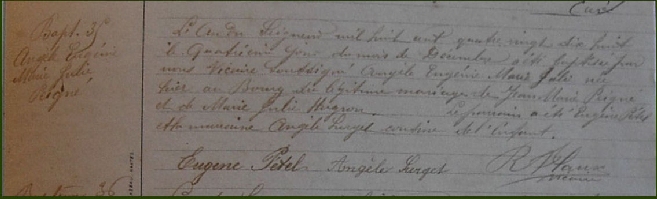 Bapt. 35
Angèle Eugénie
Marie Julie
Régné
L'an du Seigneur mil huit cent quatre vingt dix huit
le Quatrième jour du mois de Décembre a été baptisée par
nous Vicaire soussigné Angèle Eugénie Marie Julie née
hier au Bourg du légitime mariage de Jean Marie Régné
et de Marie Julie Le parrain a été Eugène Pétel
et la marraine Angèle Lerget cousine de l'enfant.
Eugene Pétel Angèle Lerget
vicaire